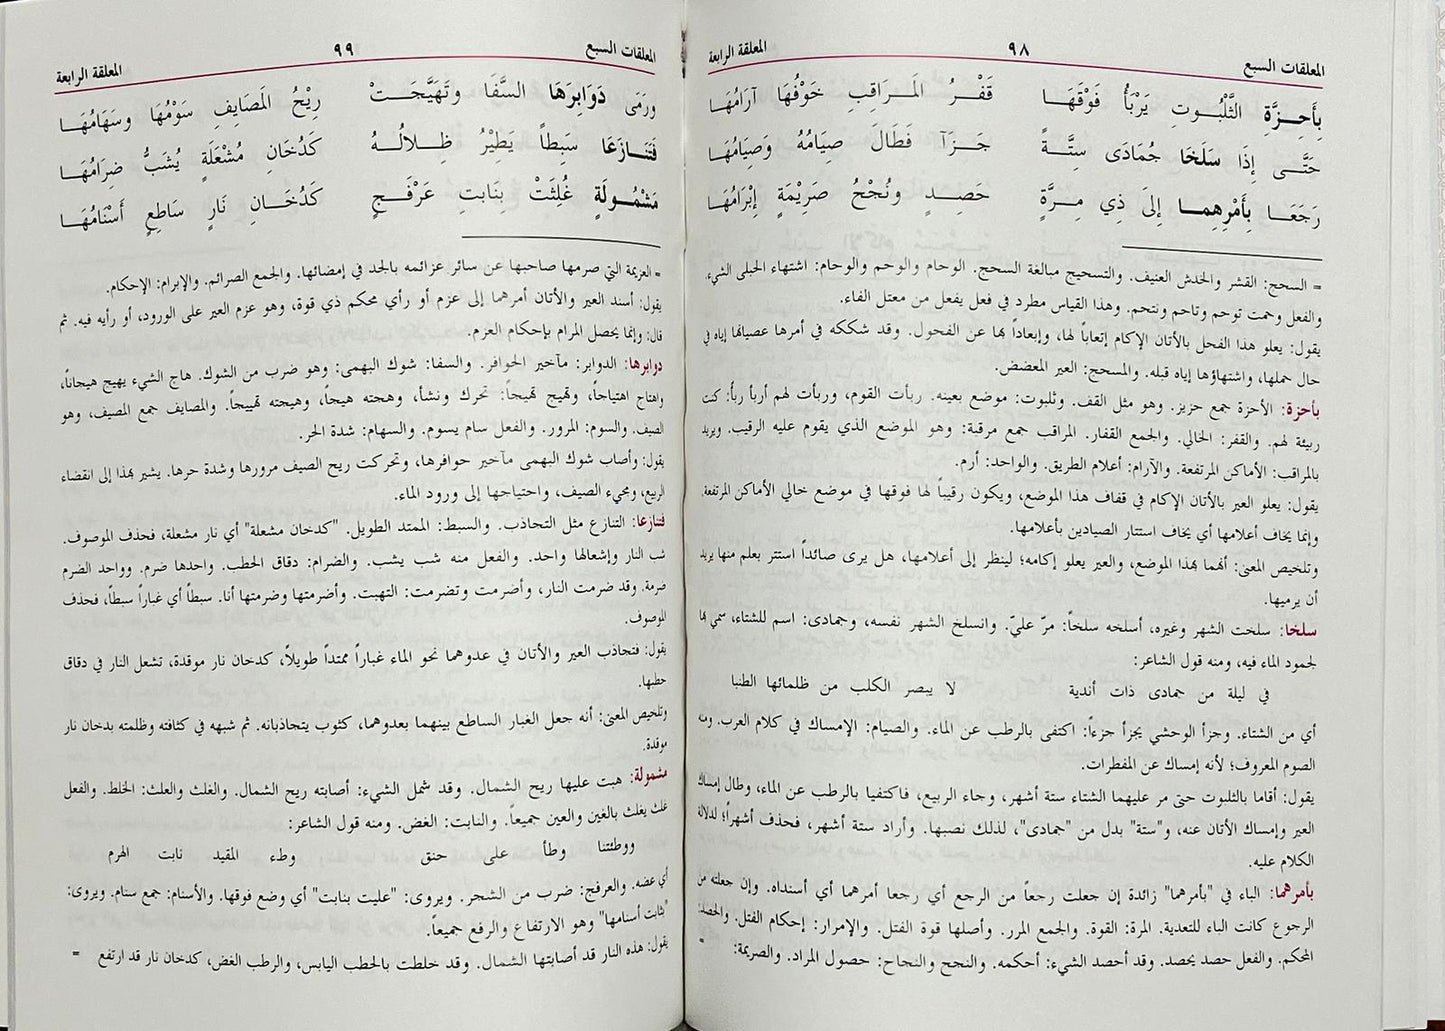 المعلقات السبع ٩٨ المعلقة الرابعة
بِأَحِـــزَّةِ الثَّلَبُـــوتِ يَرْبَأُ فَوْقَهَـــا قَفْـــرُ الْمَـــرَاقِبِ خَوْفُهَا آرَامُهَـــا
حَتَّـــى إِذَا سَلَخَا جُمَادَى سِتَّـــةً جَـــزَآ فَطَالَ صِيَامُهُ وَصِيَامُهَـــا
رَجَعَـــا بِأَمْرِهِمـــا إِلىَ ذِي مِـــرَّةٍ حَصِـــدٍ ونُجْحُ صَرِيْمَةٍ إِبْرَامُهَـــا
= السحج: القشر والخدش العنيف. والتسحيج مبالغة السحج. الوحام والوحم والوحام: اشتهاء الحبلى الشيء.
والفعل وحمت توحم وتاحم وتتحم. وهذا القياس مطرد في فعل يفعل من معتل الفاء.
يقول: يعلو هذا الفحل بالأتان الإكام إتعاباً لها، وإبعاداً بها عن الفحول. وقد شككه في أمرها عصيانها إياه في
حال حملها، واشتهاؤها إياه قبله. والمسحج: العير المعضض.
بأحزة: الأحزة جمع حزيز. وهو مثل القف. وثلبوت: موضع بعينه. ربأت القوم، وربأت لهم أربأ ربأً: كنت
ربيئة لهم. والقفر: الخالي. والجمع القفار. المراقب جمع مرقبة: وهو الموضع الذي يقوم عليه الرقيب. ويريد
بالمراقب: الأماكن المرتفعة. والآرام: أعلام الطريق. والواحد: أرم.
يقول: يعلو العير بالأتان الإكام في قفاف هذا الموضع، ويكون رقيباً لها فوقها في موضع خالي الأماكن المرتفعة.
وإنما يخاف أعلامها أي يخاف استتار الصيادين بأعلامها.
وتلخيص المعنى: أنهما بهذا الموضع، والعير يعلو إكامه؛ لينظر إلى أعلامها، هل يرى صائداً استتر بعلم منها يريد
أن يرميها.
سلخا: سلخت الشهر وغيره، أسلخه سلخاً: مرّ عليّ. وانسلخ الشهر نفسه، وجمادى: اسم للشتاء، سمي بها
لجمود الماء فيه، ومنه قول الشاعر:
في ليلة من جمادى ذات أندية لا يبصر الكلب من ظلمائها الطنبا
أي من الشتاء. وجزأ الوحشي يجزأ جزءاً: اكتفى بالرطب عن الماء. والصيام: الإمساك في كلام العرب. ومنه
الصوم المعروف؛ لأنه إمساك عن المفطرات.
يقول: أقاما بالثلبوت حتى مر عليهما الشتاء ستة أشهر، وجاء الربيع، فاكتفيا بالرطب عن الماء، وطال إمساك
العير وإمساك الأتان عنه، و"ستة" بدل من "جمادى"، لذلك نصبها. وأراد ستة أشهر، فحذف أشهراً؛ لدلالة
الكلام عليه.
بأمرهما: الباء في "بأمرهما" زائدة إن جعلت رجعاً من الرجع أي رجعا أمرهما أي أسنداه. وإن جعلته من
الرجوع كانت الباء للتعدية. المرة: القوة. والجمع المرر. وأصلها قوة الفتل. والإمرار: إحكام الفتل. والحصد:
المحكم. والفعل حصد يحصد. وقد أحصد الشيء: أحكمه. والنجح والنجاح: حصول المراد. والصريمة: =
المعلقات السبع ٩٩ المعلقة الرابعة
ورَمَى دَوَابِرَهَا السَّفَا وتَهَيَّجَـــتْ رِيْحُ الْمَصَايِفِ سَوْمُهَا وسَهَامُهَـــا
فَتَنَـــازَعَا سَبِطاً يَطِيْرُ ظِـــلالُـــهُ كَدُخَانِ مُشْعَلَةٍ يُشَبُّ ضِرَامُهَـــا
مَشْمُـــولَةٍ غُلِثَتْ بِنَابتِ عَرْفَـــجٍ كَدُخَـــانِ نَارٍ سَاطِعٍ أَسْنَامُهَـــا
= العزيمة التي صرمها صاحبها عن سائر عزائمه بالجد في إمضائها. والجمع الصرائم. والإبرام: الإحكام.
يقول: أسند العير والأتان أمرهما إلى عزم أو رأي محكم ذي قوة، وهو عزم العير على الورود، أو رأيه فيه. ثم
قال: وإنما يحصل المرام بإحكام العزم.
دوابرها: الدوابر: مآخير الحوافر. والسفا: شوك البهمى: وهو ضرب من الشوك. هاج الشيء يهيج هيجاناً،
واهتاج اهتياجاً، وتهيج تهيجاً: تحرك ونشأ، وهجته هيجاً، وهيجته تهييجاً. والمصايف جمع المصيف، وهو
الصيف. والسوم: المرور. والفعل سام يسوم. والسهام: شدة الحر.
يقول: وأصاب شوك البهمى مآخير حوافرها، وتحركت ريح الصيف مرورها وشدة حرها. يشير بهذا إلى انقضاء
الربيع، ومجيء الصيف، واحتياجها إلى ورود الماء.
فتنازعا: التنازع مثل التجاذب. والسبط: الممتد الطويل. "كدخان مشعلة" أي نار مشعلة، فحذف الموصوف.
شب النار وإشعالها واحد. والفعل منه شب يشب. والضرام: دقاق الحطب. واحدها ضرم. وواحد الضرم
ضرمة. وقد ضرمت النار، وأضرمت وتضرمت: التهبت. وأضرمتها وضرمتها أنا. سبطاً أي غباراً سبطاً، فحذف
الموصوف.
يقول: فتجاذب العير والأتان في عدوهما نحو الماء غباراً ممتداً طويلاً، كدخان نار موقدة، تشعل النار في دقاق
حطبها.
وتلخيص المعنى: أنه جعل الغبار الساطع بينهما بعدوهما، كثوب يتجاذبانه. ثم شبهه في كثافته وظلمته بدخان نار
موقدة.
مشمولة: هبت عليها ريح الشمال. وقد شمل الشيء: أصابته ريح الشمال. والغلث والعلث: الخلط. والفعل
غلث يغلث بالغين والعين جميعاً. والنابت: الغض. ومنه قول الشاعر:
ووطئتنا وطأ على حنق وطء المقيد نابت الهرم
أي غضه. والعرفج: ضرب من الشجر. ويروى: "عليت بنابت" أي وضع فوقها. والأسنام: جمع سنام. ويروى:
"بثابت أسنامها" وهو الارتفاع والرفع جميعاً.
يقول: هذه النار قد أصابتها الشمال. وقد خلطت بالحطب اليابس، والرطب الغض، كدخان نار قد ارتفع =